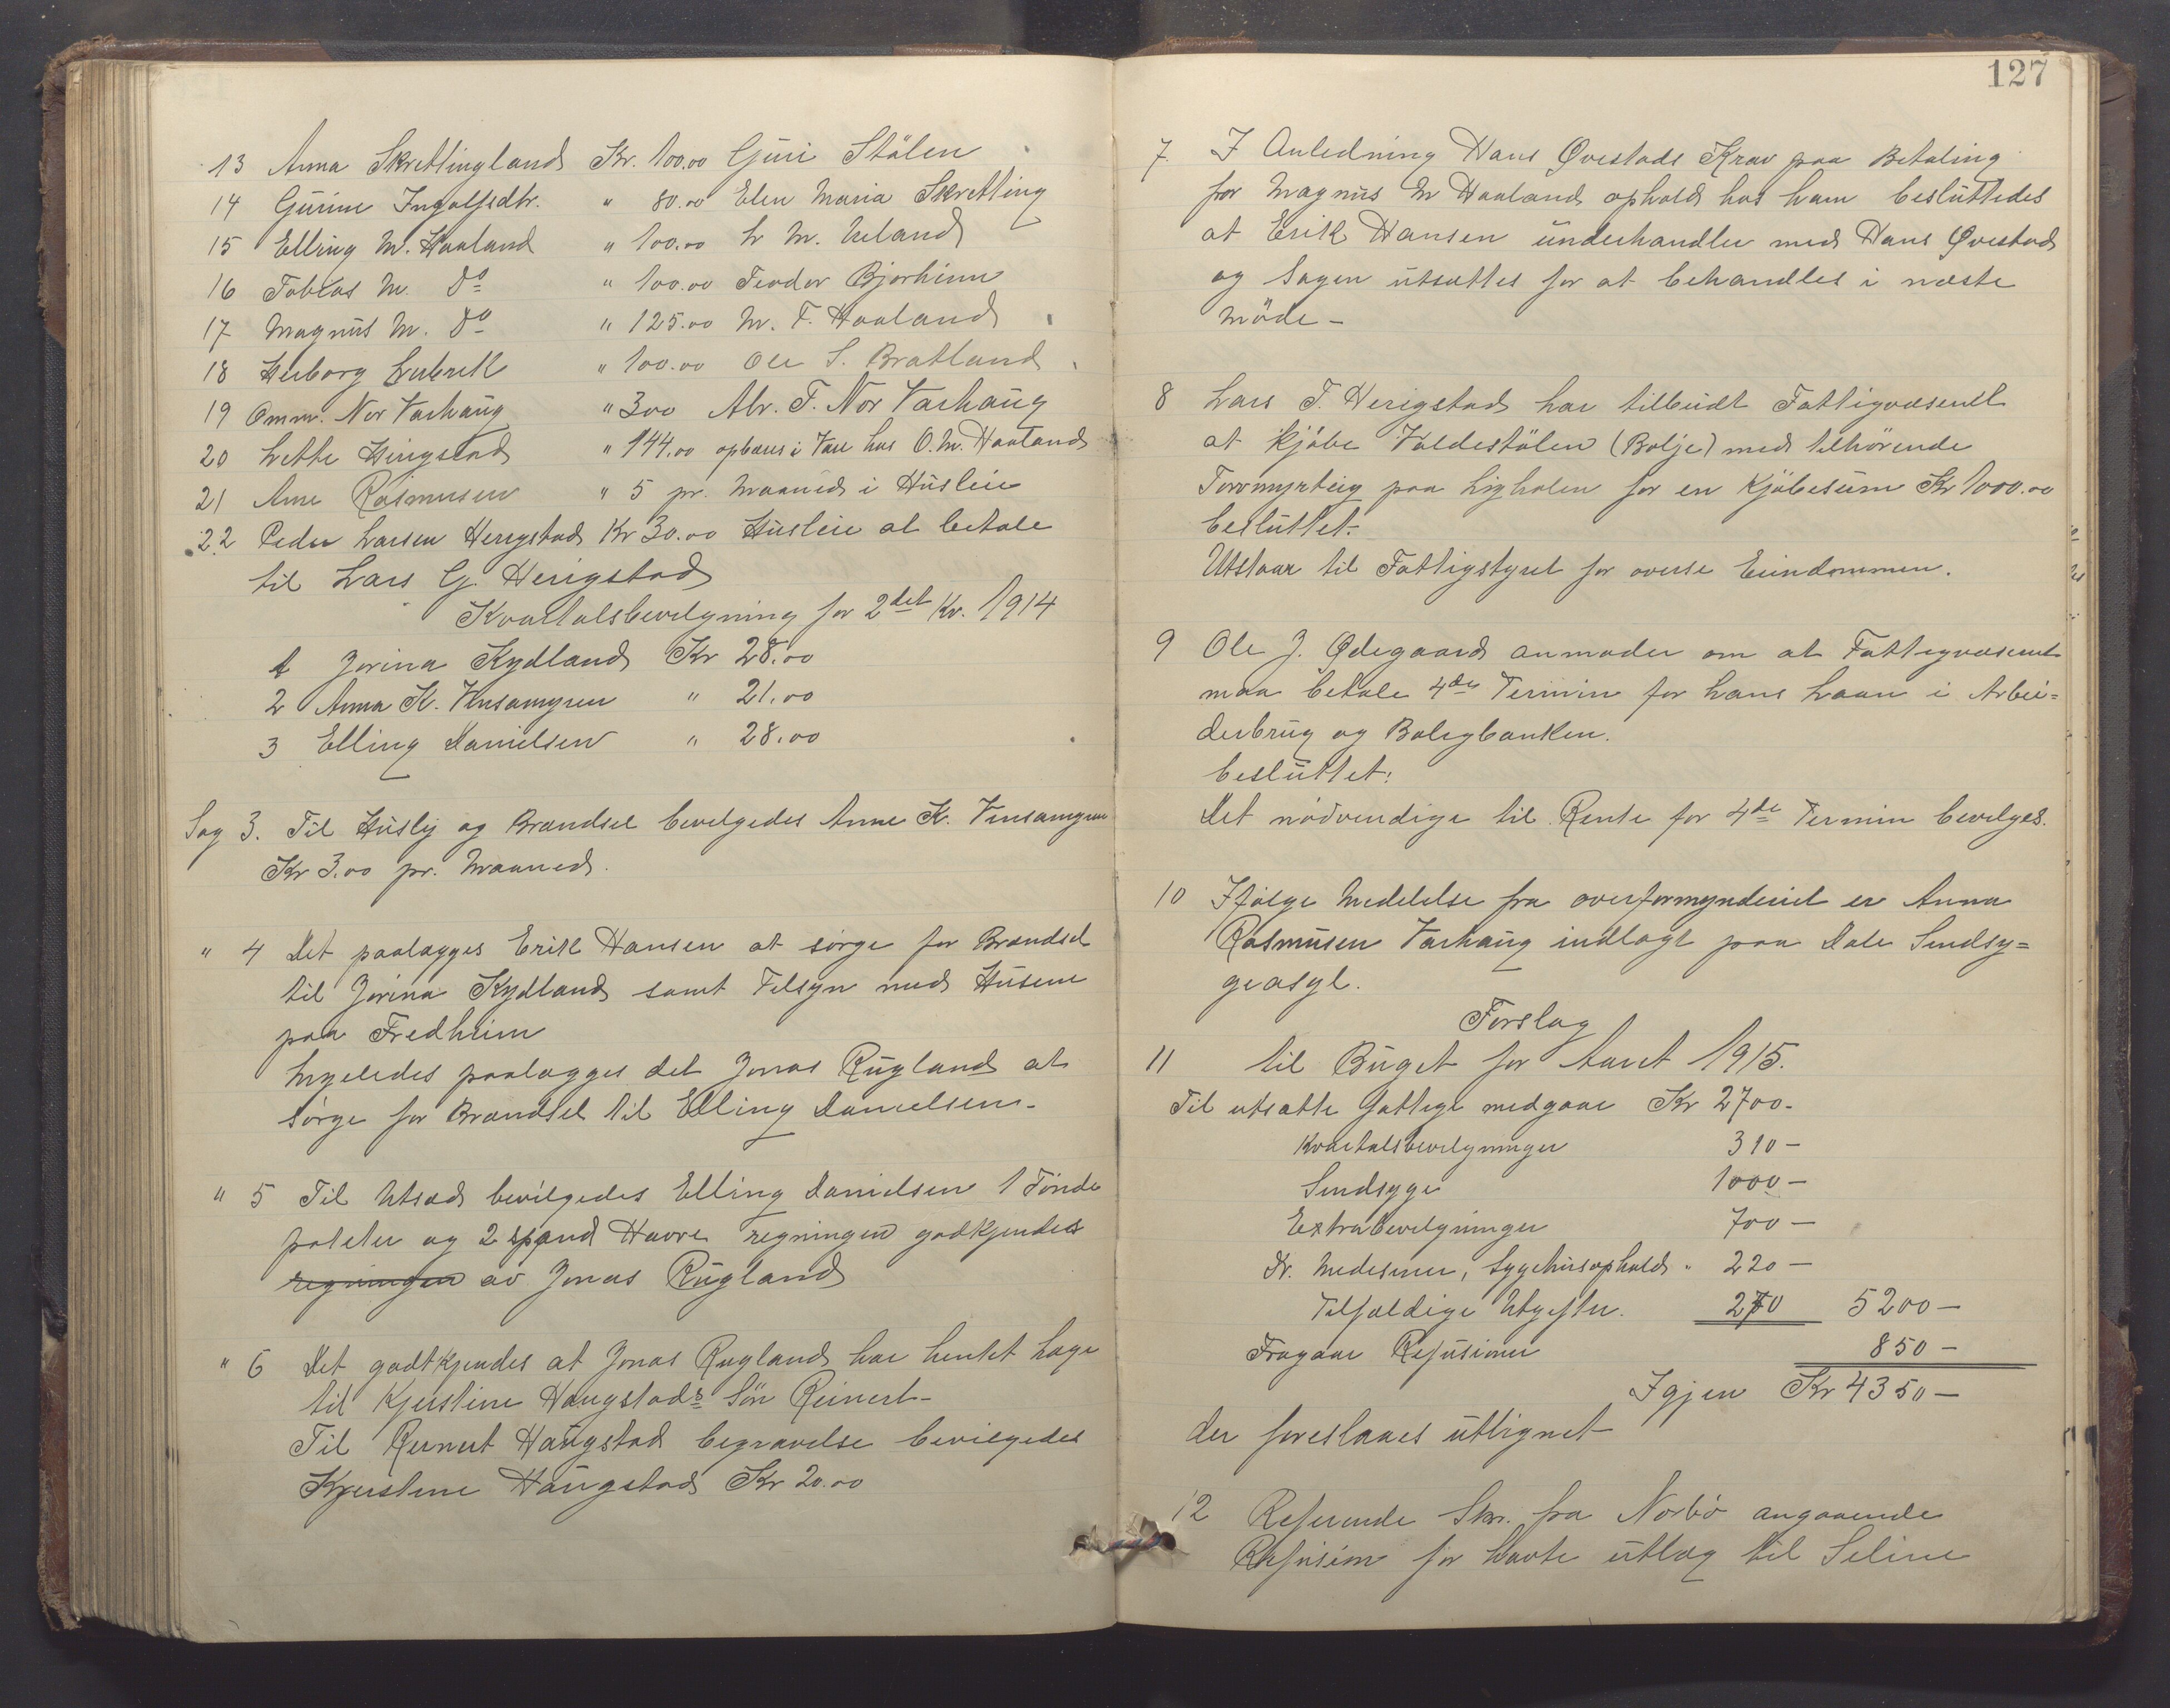 13 Anna Skretlingland Kr. 100.00 Guri Stölen
14 Gurine Ingolfsdtr. " 80.00 Elen Maria Skretting
15 Elling M. Haaland " 100.00 L M. Ueland
16 Tobias M. Do " 100.00 Teodor Bjorheim
17 Magnus M. Do " 125.00 M. T. Haaland
18 Herborg " 100.00 Ole S. Bratland
19 Omm. Nor Varhaug " 300 Abr. T. Nor Varhaug
20 Lette Herigstad " 144.00 i Vare hos O. M. Haaland
21 Ane Rasmusen " 5 pr. Maaned i Husleie
22 Peder Larsen Herigstad Kr 30.00 Husleie at betale
til Lars G. Herigstad
Kvartalsbevilgning for 2det Kv. 1914
1 Jorina Kydland Kr 28.00
2 Anna K. Vinsamyren " 21.00
3 Elling Danielsen " 28.00
Sag 3. Til Husly og Brændsel bevelgedes Anne K. Vinsamyren
Kr 3.00 pr. Maaned.
" 4 Det paalægges Erik Hansen at sørge for Brændsel
til Jorina Kydland samt Tilsyn med Husene
paa Fredheim
Ligeledes paalægges det Jonas Rugland at
sörge for Brændsel til Elling Danielsen-
" 5 Til Utsæd bevilgedes Elling Danielsen 1 Tönde
poteter og 2 spand Havre regningen godkjendes
regningen av Jonas Rugland
" 6 Det godtkjendes at Jonas Rugland har hentet Læge
til Kjerstine Haugstads Sön Reinert-
Til Reinert Haugstad begravelse bevilgedes
Kjerstine Haugstad Kr 20.00
127
7. I Anledning Hans Øvestads Krav paa Betaling
for Magnus M Haaland ophold hos ham besluttedes
at Erik Hansen underhandler med Hans Øvestad
og Sagen utsættes for at behandles i næste
Möde-
8 Lars T. Herigstad har tilbudt Fattigvæsenet
at kjöbe Valdestölen (Bolje) med tilhörende
Torvmyrteig paa Ligholen for en Kjöbesum Kr 1000.00
besluttet:
Utstaar til Fattigstyret for overse Eiendommen.
9 Ole J. Ødegaard anmoder om at Fattigvæsenet
maa betale 4de Termin for hans Laan i Arbei=
derbrug og Boligbanken.
besluttet:
Det nödvendige til Rente for 4de Termin bevilges.
10 Ifölge Medelelse fra overformynderiet er Anna
Rasmusen Varhaug indlagt paa Dale Sindsy=
geasyl.
Forslag
11 til Buget for Aaret 1915.
Til utsatte Fattige medgaar Kr 2700-
Kvartalsbevilgninger 310-
Sindsyge 1000-
Extrabevilgninger 700-
Dr. Medesiner, Sygehusophold " 220-
Tilfældige Utgifter. 270 5200-
Fragaar Refusioner 850-
Igjen Kr 4350-
der foreslaaes utlignet
12 Referende Skr. fra Norbö angaaende
Refusion for havte utlæg til Seline